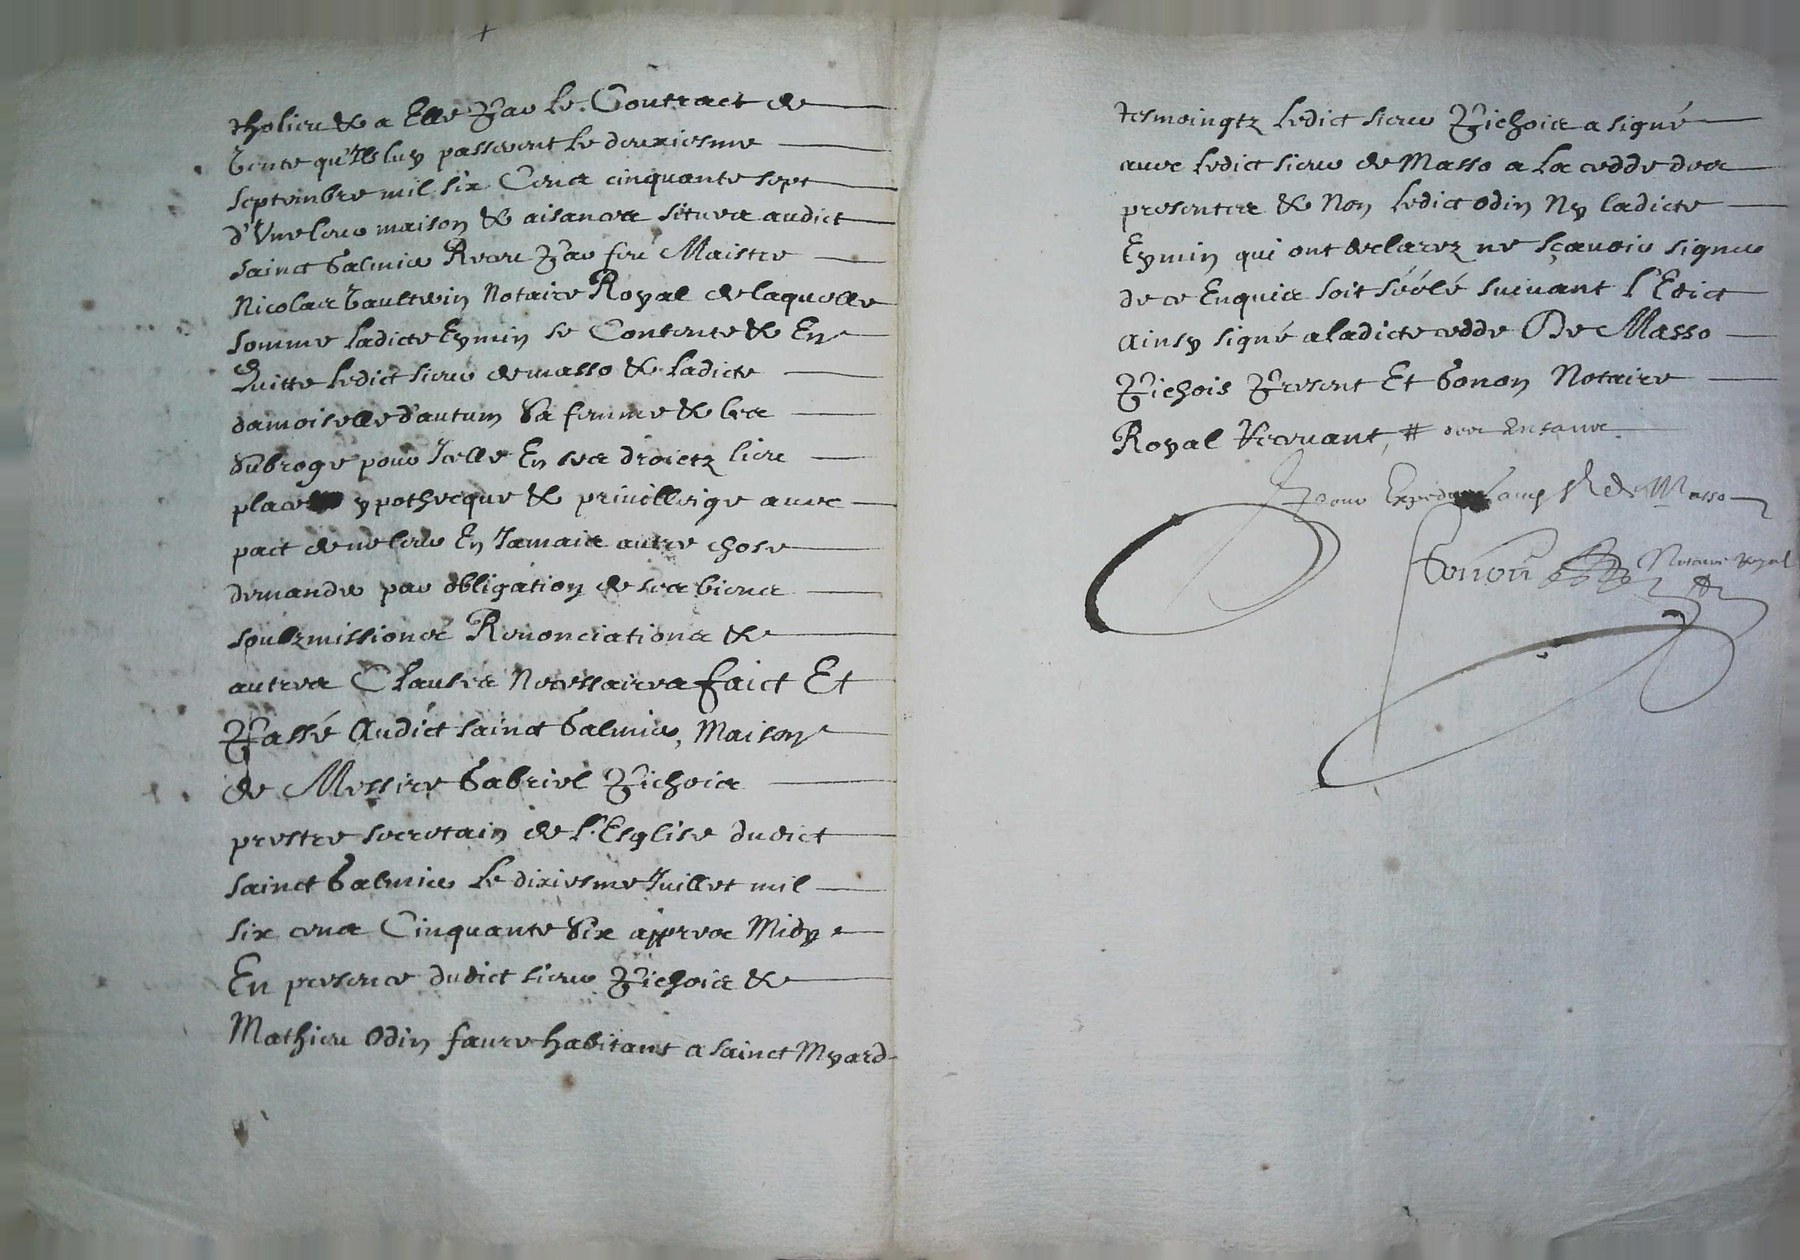 tholieu & a Elle Par Le Contract de
Vente qu'Ils luy passerent Le deuxiesme
Septembre mil six Cens cinquante sept
d'Une leur maison & aisances situes audict
Sainct Galmier Receu Par feu Maistre
Nicolas Gaultein Notaire Royal de laquelle
Somme Ladicte Eymin se Contente & En
Quitte Ledict sieur de masso & Ladicte
damoiselle d'autum Sa femme & les
Subroge pour Icelle En ses droictz lieu
place ypothecque & privilleige avec
pact de ne leur En Jamais autre chose
demander par obligation de ses biens
soubzmissions Renonciations &
autres Clauses Necessaires faict Et
Passé Audict sainct Galmier, Maison
de Messire Gabriel Pichois
prestre secretain de L'Esglise dudict
Sainct Galmier Le dixiesme Juillet mil
six cens Cinquante Six appres Midy
En presence dudict sieur Pichois &
Mathieu Odin faure habitant a sainct Myard
tesmoingtz Ledict sieur Pichois a signé
avec Ledict sieur de Masso a La cedde des
presentes & Non Ledict Odin Ny ladicte
Eymin qui ont declarez ne sçavoir signer
de ce Enquis soit séélé suivant l'Edict
Ainsy signé a ladicte cedde De Masso
Pichois Present Et Gonon Notaire
Royal Recevant,
Pour Expedition de Masso
Gonon Notaire Royal